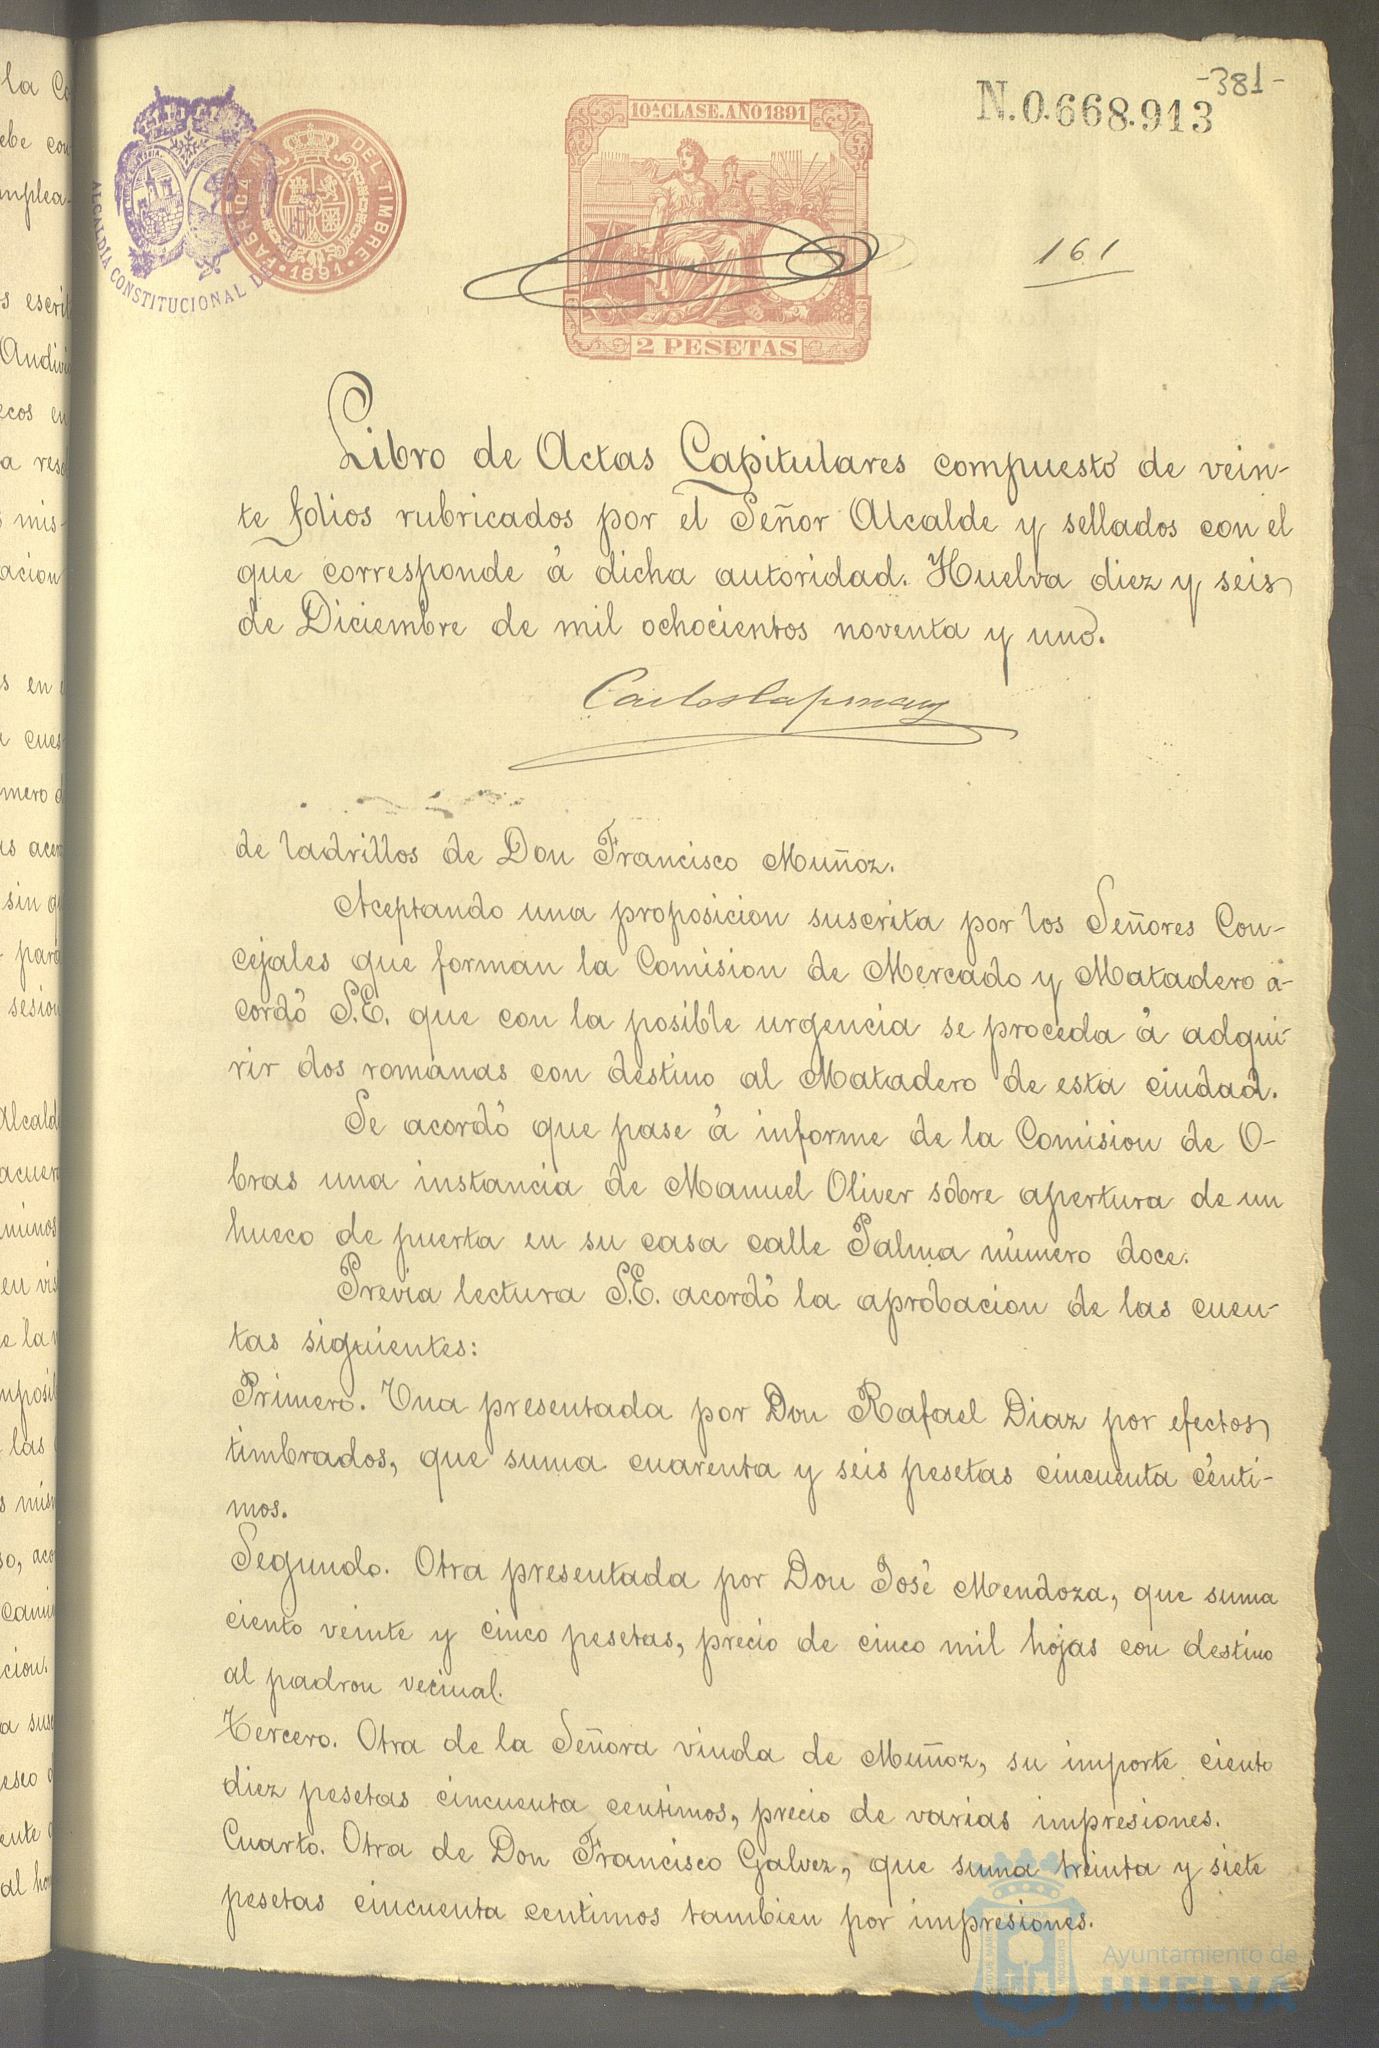 -381-
N.0.668.913
10ª CLASE. AÑO 1891
FABRICA N DEL TIMBRE
1891
ALCALDIA CONSTITUCIONAL DE
161
2 PESETAS
Libro de Actas Capitulares compuesto de vein-
te folios rubricados por el Señor Alcalde y sellados con el
que corresponde á dicha autoridad. Huelva diez y seis
de Diciembre de mil ochocientos noventa y uno.
Carlos Capmany
de ladrillos de Don Francisco Muñoz.
Aceptando una proposicion suscrita por los Señores Con-
cejales que forman la Comision de Mercado y Matadero a-
cordó S.E. que con la posible urgencia se proceda á adqui-
rir dos romanas con destino al Matadero de esta ciudad.
Se acordó que pase á informe de la Comision de O-
bras una instancia de Manuel Oliver sobre apertura de un
hueco de puerta en su casa calle Palma número doce.
Previa lectura S.E. acordó la aprobacion de las cuen-
tas siguientes:
Primero. Una presentada por Don Rafael Diaz por efectos
timbrados, que suma cuarenta y seis pesetas cincuenta cénti-
mos.
Segundo. Otra presentada por Don José Mendoza, que suma
ciento veinte y cinco pesetas, precio de cinco mil hojas con destino
al padron vecinal.
Tercero. Otra de la Señora viuda de Muñoz, su importe ciento
diez pesetas cincuenta centimos, precio de varias impresiones.
Cuarto. Otra de Don Francisco Galvez, que suma treinta y siete
pesetas cincuenta centimos tambien por impresiones.
Ayuntamiento de
HUELVA